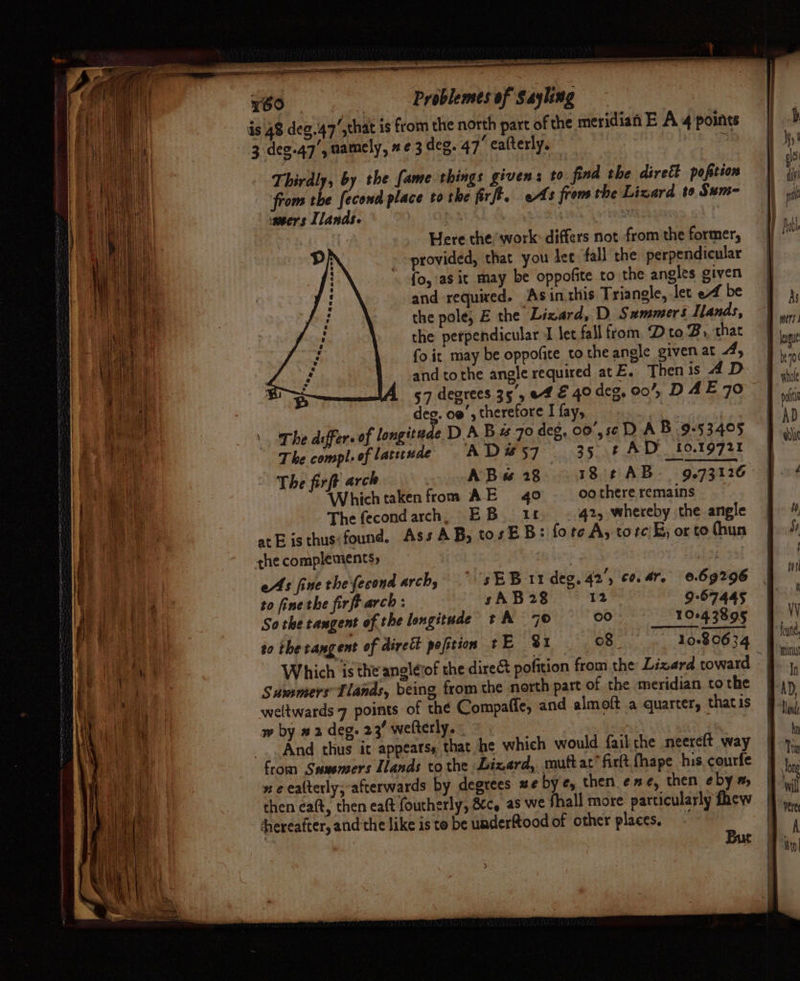 160 Problemes of Sayling
is 48 deg. 47′, that is from the north part of the meridian E A 4 points
3 deg. 47′, namely, n e 3 deg. 47′ eaſterly.
Thirdly, by the ſame things given: to find the direct poſition
from the ſecond place to the firſt. As from the Lizard to Sum-
mers Ilands.
Here the work differs not from the former,
provided, that you let fall the perpendicular
ſo, as it may be oppoſite to the angles given
and required. As in this Triangle, let A be
the pole, E the Lizard, D Summers Ilands,
the perpendicular I let fall from D to B, that
ſo it may be oppoſite to the angle given at A,
and to the angle required at E. Then is A D
57 degrees 35′, A E 40 deg. 00′, D A E 70
deg. 00′, therefore I ſay,
D
A
B
The differ. of longitude D A B is 70 deg. 00′, sc D A B 9.53405
The compl. of latitude A D is 57 35 t A D 10.19721
The firſt arch A B is 28 18 t A B 9.73126
Which taken from A E 40 00 there remains
The ſecond arch, E B 11 42, whereby the angle
at E is thus found. As s A B, to s E B: ſo t c A, to t c E, or to ſhun
the complements,
As ſine the ſecond arch, s E B 11 deg. 42′, co. ar. 0.69296
to ſine the firſt arch: s A B 28 12 9.67445
So the tangent of the longitude t A 70 00 10.43895
to the tangent of direct poſition t E 81 08 10.80634
Which is the angle of the direct poſition from the Lizard toward
Summers Ilands, being from the north part of the meridian to the
weſtwards 7 points of the Compaſſe, and almoſt a quarter, that is
w by n 2 deg. 23′ weſterly.
And thus it appears, that he which would ſail the neereſt way
from Summers Ilands to the Lizard, muſt at firſt ſhape his courſe
n e eaſterly, afterwards by degrees n e by e, then e n e, then e by n,
then eaſt, then eaſt ſoutherly, &c, as we ſhall more particularly ſhew
hereafter, and the like is to be underſtood of other places.
But